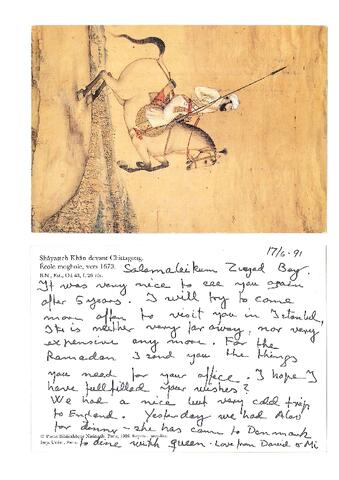 17/6-91
Shâyasteh Khân devant Chittagong.
École moghole, vers 1673.
B.N., Est., Od 43, f. 26 rés.
Salamaleikum Ziyad Bey.
It was very nice to see you again
after 5 years. I will try to come
more often to visit you in Istanbul,
It is neither very far away, nor very
expensive any more. For the
Ramadan I send you the things
you need for your office. I hope I
have fullfilled your wishes?
We had a nice but very cold trip
to England. Yesterday we had
for dinner - she has come to Denmark
to dine with queen. Love from David &
© Bibliothèque Nationale, Paris,